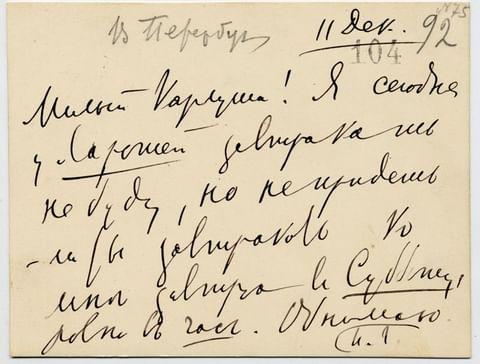 В Петербург
11 Дек. 92
№ 75
104
Милый Карлуша! Я сегодня
у Ларошей завтракать
не буду, но не придешь
-ли ты завтракать ко
мне завтра в Субботу,
ровно в час. Обнимаю.
П. Ч.